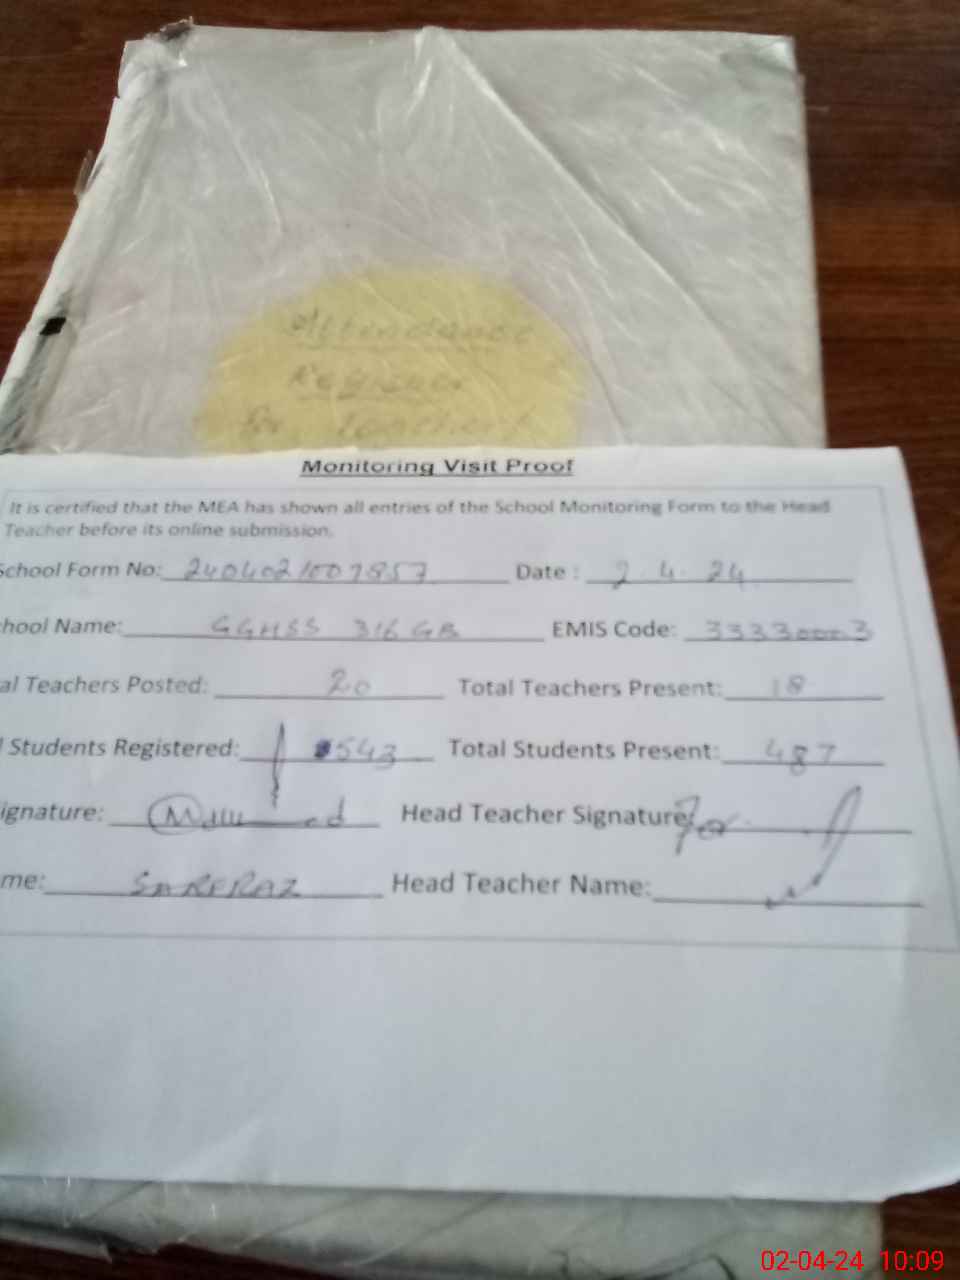 Attendance
Register
for Teachers
Monitoring Visit Proof
It is certified that the MEA has shown all entries of the School Monitoring Form to the Head
Teacher before its online submission.
School Form No: 2404021007857 Date: 2.4.24
hool Name: GGHSS 316 GB EMIS Code: 33330003
al Teachers Posted: 20 Total Teachers Present: 18
l Students Registered: 543 Total Students Present: 487
ignature: Head Teacher Signature: For
me: SARFRAZ Head Teacher Name:
02-04-24 10:09